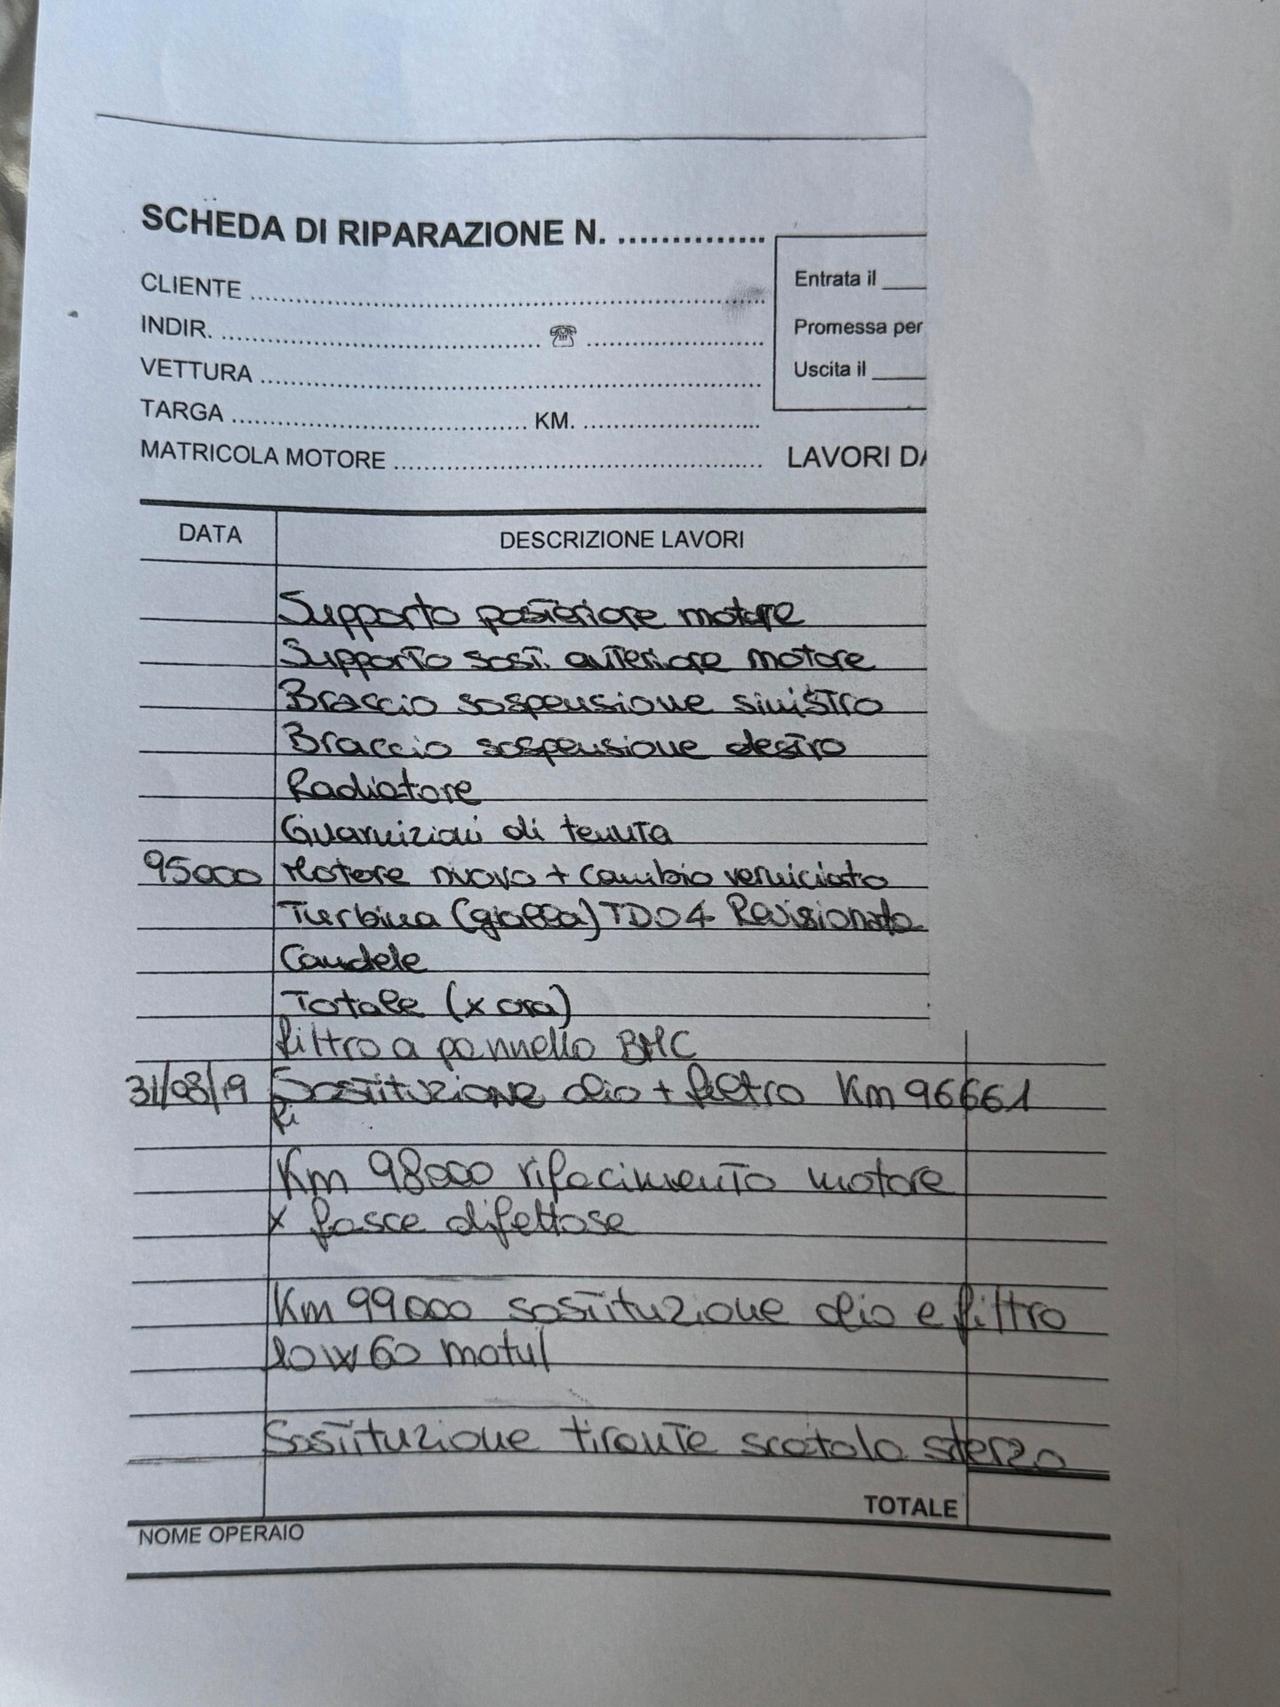 SCHEDA DI RIPARAZIONE N. ...............
CLIENTE
INDIR. ☎
VETTURA
TARGA KM.
MATRICOLA MOTORE
Entrata il
Promessa per
Uscita il
LAVORI DA
DATA DESCRIZIONE LAVORI
Supporto posteriore motore
Supporto sost. anteriore motore
Braccio sospensione sinistro
Braccio sospensione destro
Radiatore
Guarnizioni di tenuta
95000 Motore nuovo + cambio verniciato
Turbina (gialla) TD04 Revisionata
Candele
Totale (x ora)
filtro a pannello BMC
31/08/19 Sostituzione olio + filtro Km 96661
fi
Km 98000 rifacimento motore
x fasce difettose
Km 99000 sostituzione olio e filtro
10w60 motul
Sostituzione tirante scatola sterzo
TOTALE
NOME OPERAIO